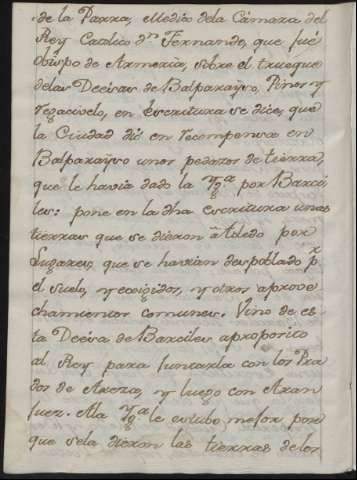 de la Parra, Medico dela Cámara del
Rey Catolico Dn Fernando, que fué
obispo de Armeria, sobre el trueque
delas Deesas de Balparayso, Pinos y
Regacivelo, en escritura se dice, que
la Ciudad dió en recompensa en
Balparayso unos pedazos de tierra,
que le havia dado la Yga por Barci-
les: pone en la dha escritura unas
tierras que se dieron â Toledo por
Lugares, que se havian despoblado pr
el suelo, y exigidos, y otros aprove-
chamientos comunes. Vino de es-
ta Deesa de Barciles aproposito
al Rey para juntarla con los Pra-
dos de Areza, y luego con Aran
juez. Ala Yga le estubo mejor por-
que sela dieron las tierras delos